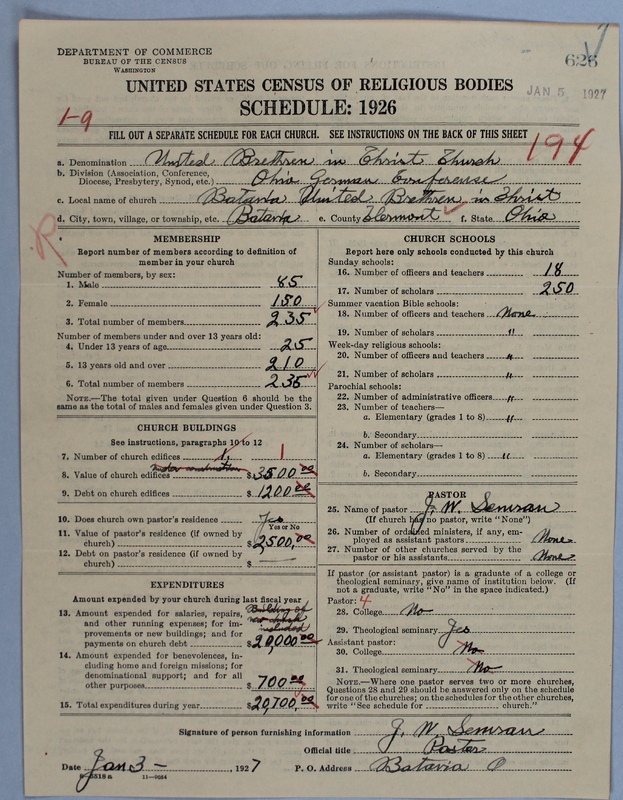 DEPARTMENT OF COMMERCE
BUREAU OF THE CENSUS
WASHINGTON
626
UNITED STATES CENSUS OF RELIGIOUS BODIES
JAN 5, 1927
SCHEDULE: 1926
1-9
FILL OUT A SEPARATE SCHEDULE FOR EACH CHURCH. SEE INSTRUCTIONS ON THE BACK OF THIS SHEET
194
a. Denomination United Brethren in Christ Church
b. Division (Association, Conference, Diocese, Presbytery, Synod, etc.) Ohio German Conference
c. Local name of church Batavia United Brethren in Christ
d. City, town, village, or township, etc. Batavia e. County Clermont f. State Ohio
R
MEMBERSHIP
Report number of members according to definition of
member in your church
Number of members, by sex:
1. Male 85
2. Female 150
3. Total number of members 235
Number of members under and over 13 years old:
4. Under 13 years of age 25
5. 13 years old and over 210
6. Total number of members 235
NOTE.—The total given under Question 6 should be
same as the total of males and females given under Question 3.
CHURCH BUILDINGS
See instructions, paragraphs 10 to 12
7. Number of church edifices 1, 1
under construction
8. Value of church edifices $3500.00
9. Debt on church edifices $1200.00
10. Does church own pastor's residence Yes
Yes or No
11. Value of pastor's residence (if owned by
church) $2500.00
12. Debt on pastor's residence (if owned by
church) $
EXPENDITURES
Amount expended by your church during last fiscal year
Building of
new church
included
13. Amount expended for salaries, repairs,
and other running expenses; for im-
provements or new buildings; and for
payments on church debt $20,000.00
14. Amount expended for benevolences, in-
cluding home and foreign missions; for
denominational support; and for all
other purposes $700.00
15. Total expenditures during year $20,700.00
CHURCH SCHOOLS
Report here only schools conducted by this church
Sunday schools:
16. Number of officers and teachers 18
17. Number of scholars 250
Summer vacation Bible schools:
18. Number of officers and teachers None
19. Number of scholars "
Week-day religious schools:
20. Number of officers and teachers "
21. Number of scholars "
Parochial schools:
22. Number of administrative officers "
23. Number of teachers—
a. Elementary (grades 1 to 8) "
b. Secondary
24. Number of scholars—
a. Elementary (grades 1 to 8) "
b. Secondary
PASTOR
25. Name of pastor J. W. Semran
(If church has no pastor, write "None")
26. Number of ordained ministers, if any, em-
ployed as assistant pastors None
27. Number of other churches served by the
pastor or his assistants None
If pastor (or assistant pastor) is a graduate of a college or
theological seminary, give name of institution below. (If
not a graduate, write "No" in the space indicated.)
Pastor: 4
28. College No
29. Theological seminary Yes
Assistant pastor:
30. College No
31. Theological seminary No
NOTE.—Where one pastor serves two or more churches,
Questions 28 and 29 should be answered only on the schedule
for one of the churches; on the schedules for the other churches,
write "See schedule for church."
Signature of person furnishing information J. W. Semran
Official title Pastor
Date Jan 3- 1927 P. O. Address Batavia O
8-5518a 11-9034